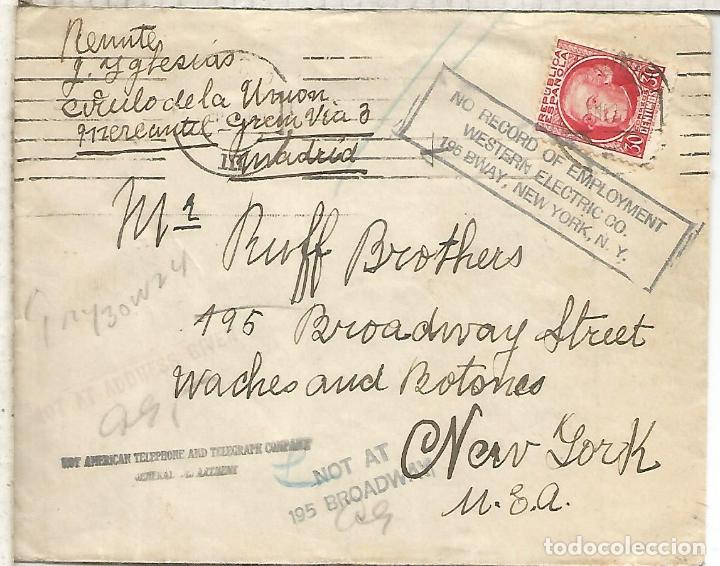 Remite
J. Yglesias
Circulo de la Union
Mercantil Gran Via 3
Madrid
REPUBLICA
ESPAÑOLA
30
30
CENTIMOS
NO RECORD OF EMPLOYMENT
WESTERN ELECTRIC CO.
195 BWAY, NEW YORK, N. Y.
Mr Ruff Brothers
195 Broadway Street
Waches and Botones
New York
U.S.A.
NOT AT ADDRESS GIVEN
NOT AMERICAN TELEPHONE AND TELEGRAPH COMPANY
GENERAL DEPARTMENT
NOT AT
195 BROADWAY
todocoleccion.net